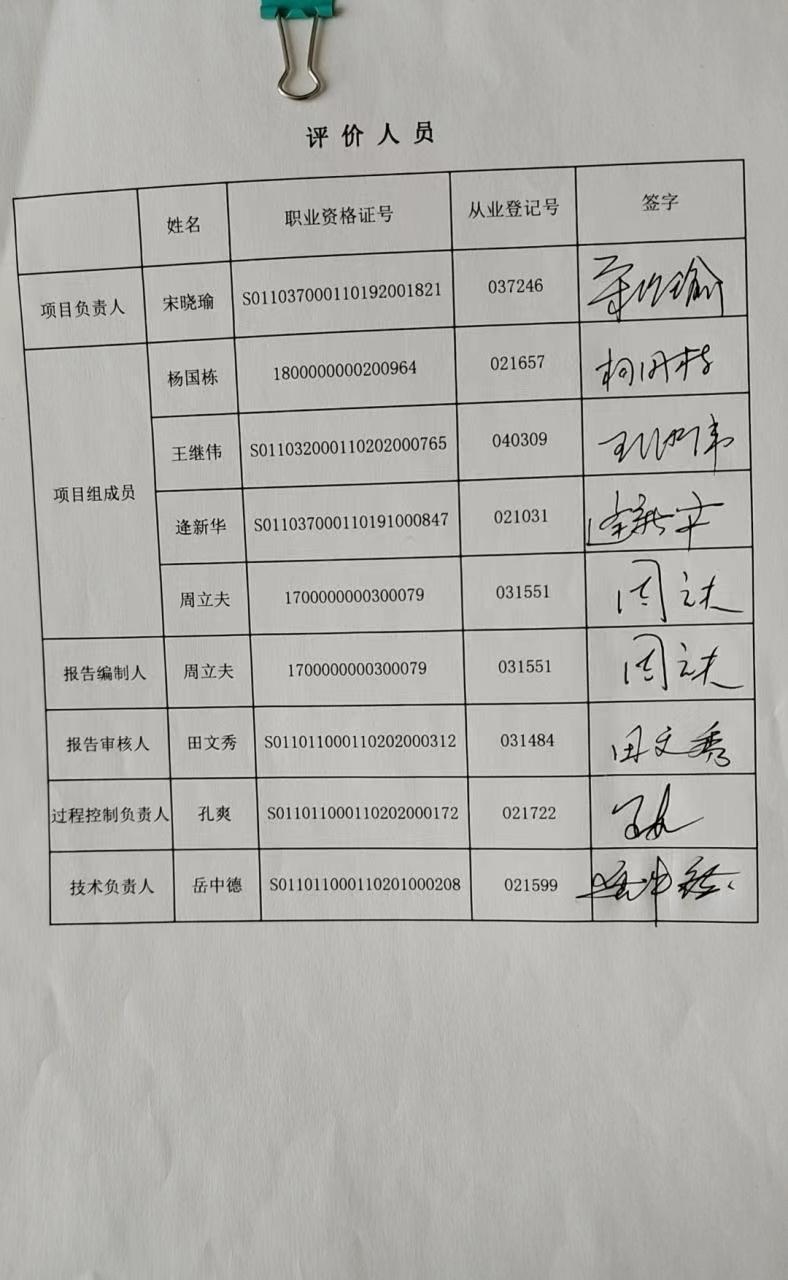 评价人员
姓名 职业资格证号 从业登记号 签字
项目负责人 宋晓瑜 S011037000110192001821 037246
项目组成员 杨国栋 1800000000200964 021657
王继伟 S011032000110202000765 040309 王继伟
逄新华 S011037000110191000847 021031
周立夫 1700000000300079 031551 周立夫
报告编制人 周立夫 1700000000300079 031551 周立夫
报告审核人 田文秀 S011011000110202000312 031484 田文秀
过程控制负责人 孔爽 S011011000110202000172 021722
技术负责人 岳中德 S011011000110201000208 021599